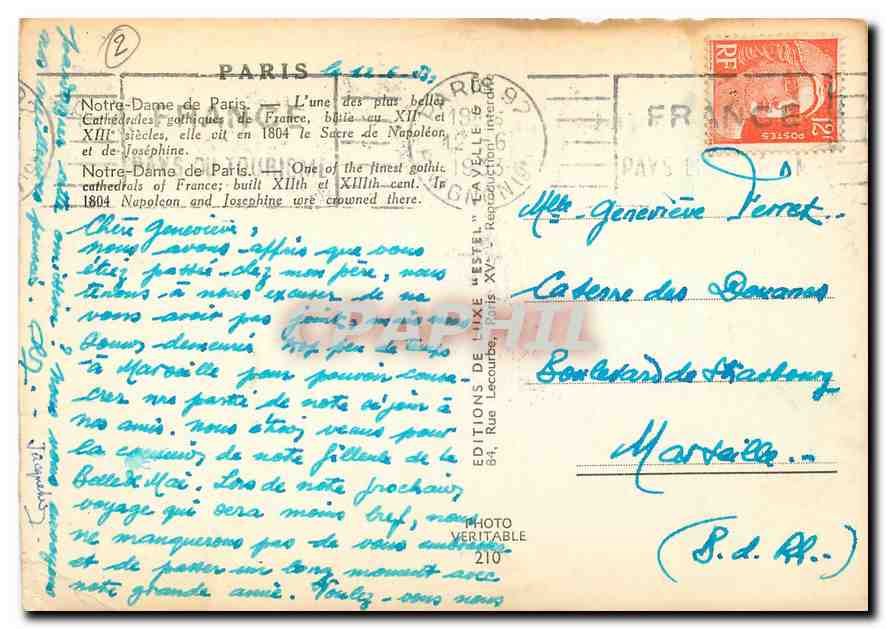 2
PARIS le 12-6-53.
Notre-Dame de Paris. — L'une des plus belles
Cathédrales gothiques de France, bâtie au XIIe et
XIIIe siècles, elle vit en 1804 le Sacre de Napoléon
et de Joséphine.
Notre-Dame de Paris. — One of the finest gothic
cathedrals of France; built XIIth et XIIIth cent. In
1804 Napoleon and Josephine were crowned there.
Chère Geneviève,
nous avons appris que vous
étiez passée chez mon père, nous
tenons à nous excuser de ne
vous avoir pas mais nous
sommes demeurés trop peu de temps
à Marseille pour pouvoir consa-
crer une partie de notre séjour à
nos amis. Nous étions venus pour
la communion de notre filleule de la
Belle de Mai. Lors de notre prochain
voyage qui sera moins bref, nous
ne manquerons pas de vous embrasser
et de passer un long moment avec
notre grande amie. Voulez-vous nous
cette omission ? Nous vous envoyons
nos meilleures pensées.
Jacqueline
EDITIONS DE LUXE "ESTEL" LAVELLE &
84, Rue Lecourbe, Paris XVe - Reproduction interdite
PHOTO
VERITABLE
210
PARIS 92
FRANCE
PAYS DU TOURISME
FRANCE
PAYS
RF
POSTES
12F
CPAPHIL
Mlle Geneviève Perret
Caserne des Douanes
Boulevard de Strasbourg
Marseille
(B. d. Rh.)